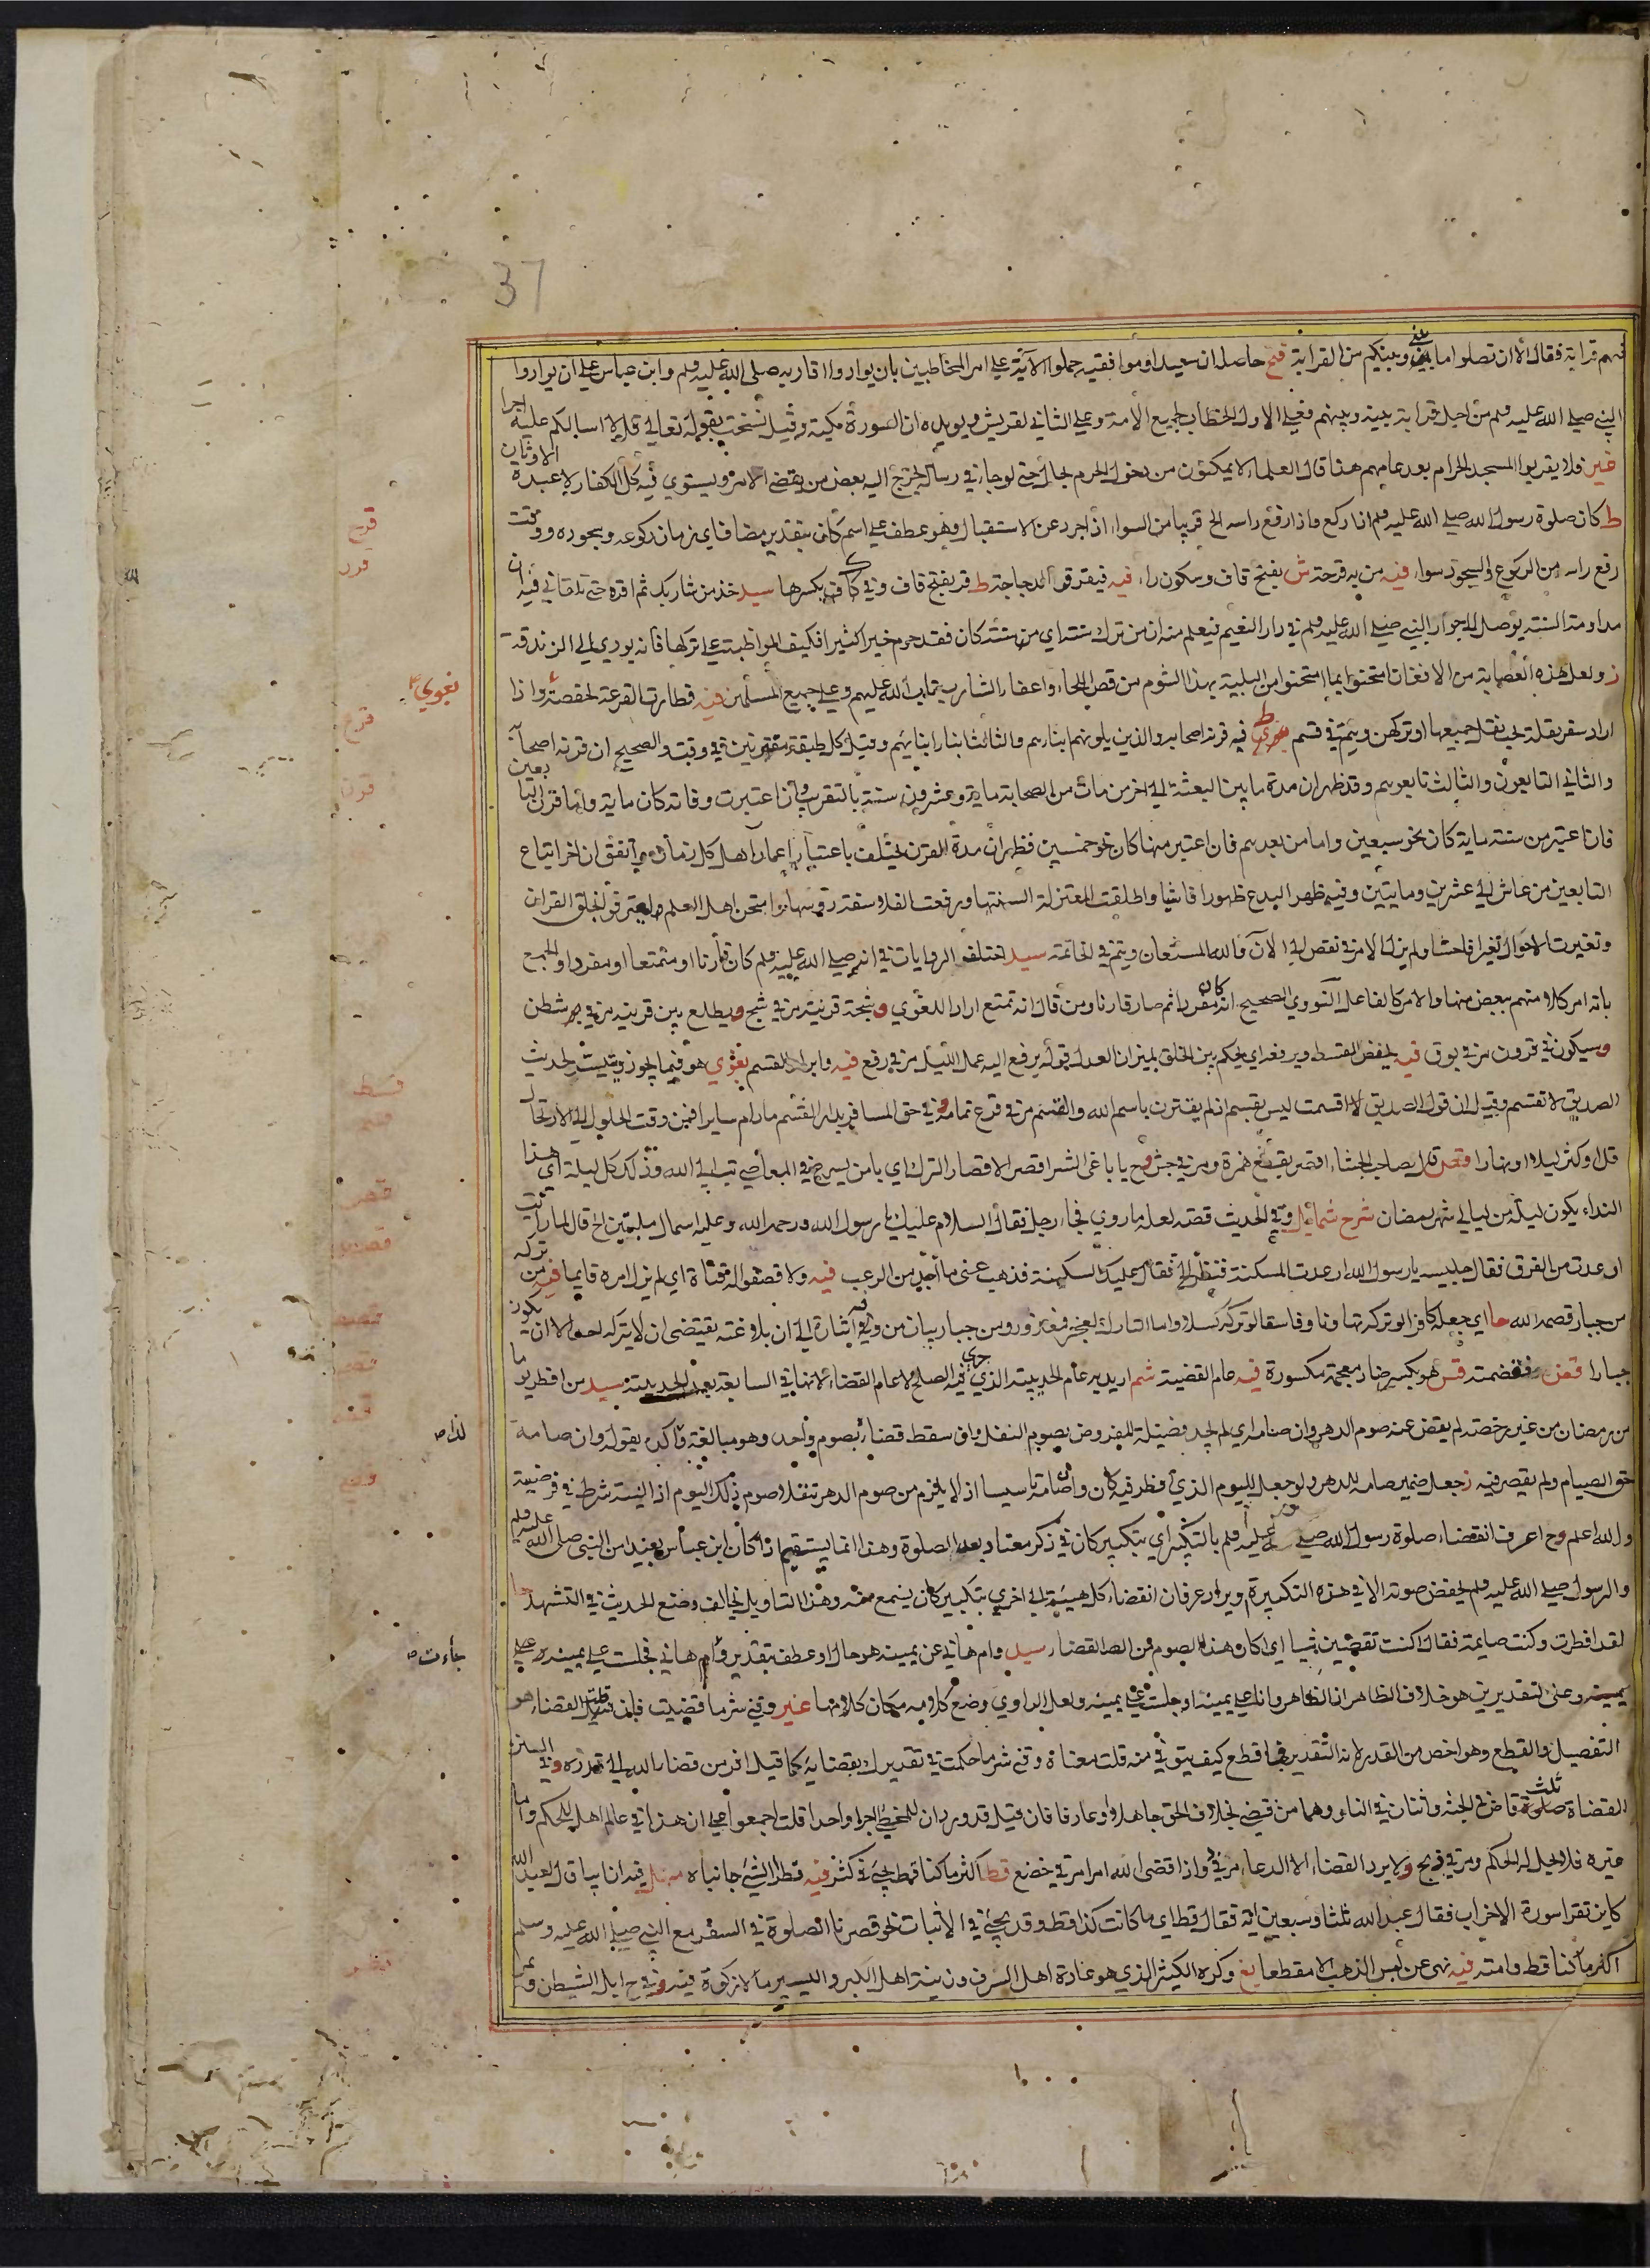 37
فيهم قرابة فقال الا ان تصلوا ما بيني وبينكم من القرابة فتح حاصله ان سعيدا وموافقيه حملوا الآية على امر المخاطبين بان يوادوا اقاربه صلى الله عليه وسلم وابن عباس على ان يوادوا
النبي صلى الله عليه وسلم من اجل قرابة بينه وبينهم فعلى الاول الخطاب لجميع الأمة وعلى الثاني لقريش ويؤيده ان السورة مكية وقيل نسخت بقوله تعالى قل لا اسألكم عليه اجرا
غير فلا يقربوا المسجد الحرام بعد عامهم هذا قال العلماء لا يمكنون من دخول الحرم بحال حتى لو جاء في رسالة يخرج اليه بعض من يقضي الامر ويستوي فيه كل الكفار لا عبدة الاوثان
ط كان صلوة رسول الله صلى الله عليه وسلم اذا ركع واذا رفع راسه الخ قريبا من السواء اذ اجرد عن الاستقبال وهو عطف على اسم كان بتقدير مضاف اي زمان ركوعه وسجوده ووقت
رفع راسه من الركوع والسجود سواء فيه من به قرحة ش بفتح قاف وسكون راء فيه فيقرقر الدجاجة ط قر بفتح قاف وفي بكسرها سيد خذ من شاربك ثم اقره حتى تلقاني فيه ان
مداومة السنة يوصل الى جوار النبي صلى الله عليه وسلم في دار النعيم فيعلم منه ان من ترك سنة اي سنة كان فقد حرم خيرا كثيرا فكيف المواظبة على تركها فانه يودي الى الزندقة
ز ولعل هذه العصابة من الافغان امتحنوا ايما امتحنوا من البلية بهذا الشوم من قص اللحاء واعفاء الشارب تاب الله عليهم وعلى جميع المسلمين فيه فطارت القرعة لحفصة واذا
اراد سفر بقلة لحب نقل جميعها او تركهن ويتم في قسم فيه قرنه اصحابه والذين يلونهم ابناءهم والثالث ابناء ابنائهم وقيل كل طبقة مقترنين في وقت والصحيح ان قرنه اصحابه
والثاني التابعون والثالث تابعوهم وقد ظهر ان مدة ما بين البعثة الى اخر من مات من الصحابة ماية وعشرون سنة بالتقريب وان اعتبرت وفاته كان ماية واما قرن التابعين
فان اعتبر من سنة ماية كان نحو سبعين واما من بعدهم فان اعتبر منها كان نحو خمسين فظهر ان مدة القرن يختلف باعتبار اعمار اهل كل زمان واتفق ان اخر اتباع
التابعين من عاش الى عشرين ومايتين وفيه ظهر البدع ظهورا فاشيا واطلقت المعتزلة السنتها ورفعت الفلاسفة رؤسها وامتحن اهل العلم ليعترفوا بخلق القران
وتغيرت الاحوال تغيرا فاحشا ولم يزل الامر في نقص الى الآن فالله المستعان ويتم في الخاتمة سيد اختلف الروايات في انه صلى الله عليه وسلم كان قارنا او متمتعا او مفردا والجمع
بانه امر كلا منهم ببعض منها والامر كالفاعل النووي الصحيح انه كان مفردا ثم صار قارنا ومن قال انه تمتع اراد اللغوي وشجة قرنية مر في شج ويطلع بين قرنيه مر في شطن
وسيكون في قرون مر في بوق فيه يخفض القسط ويرفعه اي يحكم بين الخلق بميزان العدل قوله يرفع اليه عمل الليل مر في رفع فيه وابراد القسم نغوي هو فيما يجوز ويثبت لحديث
الصديق لا تقسم وقيل ان قول الصديق لا اقسمت ليس بقسم اذ لم يقترن باسم الله والقسم مر في قرع تمامه وفي حق المسافر يدار القسم ما دام سايرا فمن وقت الحلول الى الارتحال
قل او كثر ليلا او نهارا قصر قال لصاحب الجشاء اقصر بقطع همزة ومر في جش وح يا باغي الشر اقصر الاقصار الترك اي يا من يسرع في المعاصي تب الى الله وذلك كل ليلة اي هذا
النداء يكون ليلة من ليالي شهر رمضان شرح شمائل وفي الحديث قصة لعله ما روي فجاء رجل فقال السلام عليك يا رسول الله ورحمة الله وعليه اسمال مليتين الخ قال لما رأيت
ارعدت من الفرق فقال جليسه يا رسول الله ارعدت المسكنة فنظر الخ فقال عليك السكينة فذهب عني ما اجد من الرعب فيه ولا قصفوا له قناة اي لم يزل امره قايما فيه من تركه
من جبار قصمه الله حا اي جعله كافرا لو تركه تهاونا وفاسقا لو تركه كسلا واما التارك لعجز فمعذور ومن جبار بيان من وفيه اشارة الى ان بلاغته يقتضي ان لا يتركه احد الا ان يكون
جبارا قضض قس هو بكسر ضاد معجمة مكسورة فيه عام القضية شم اريد به عام الحديبية الذي جرى فيه الصلح لا عام القضاء لانها في السابعة بعد الحديبية سيد من افطر يوما
من رمضان من غير رخصة لم يقض عنه صوم الدهر وان صامه اي لم يجد فضيلة المفروض بصوم النفل وان سقط قضاؤه بصوم واحد وهو مبالغة وأكده بقوله وان صامه
حق الصيام ولم يقصر فيه ز جعل ضمير صامه للدهر ولو جعل لليوم الذي افطر فيه كان وان صامه تاسيسا اذ لا يلزم من صوم الدهر تنفلا صوم ذلك اليوم اذ النية شرط في فرضيته
والله اعلم وح اعرف انقضاء صلوة رسول الله صلى الله عليه وسلم بالتكبير اي بتكبير كان في ذكر معتاد بعد الصلوة وهذا انما يستقيم اذا كان ابن عباس بعيدا من النبي صلى الله عليه وسلم
والرسول صلى الله عليه وسلم يخفض صوته الا في هذه التكبيرة ويراد عرفان انقضاء كل هيئة الى اخرى بتكبير كان يسمع منه وهذا التاويل يخالف وضع الحديث في التشهد
لقد افطرت وكنت صايمة فقال اكنت تقضين شيئا اي اكان هذا الصوم من القضاء سيد وام هاني عن يمينه هو حال او عطف بتقدير وام هاني فجلست على يمينه على
يمينه وعلى التقديرين هو خلاف الظاهر اذ الظاهر وانا على يمينه او جلست على يمينه ولعل الراوي وضع كلامه مكان كلامها غير وقني شر ما قضيت فان قيل القضاء هو
التفصيل والقطع وهو اخص من القدر لانه التقدير فما قطع كيف يتوقى منه قلت معناه وقني شر ما حكمت في تقديرك بقضايه كما قيل افر من قضاء الله الى قدره وفي السنن
القضاة ثلثة قاض في الجنة واثنان في النار وهما من قضى بخلاف الحق جاهلا او عارفا فان قيل قد ورد ان للمخطئ اجرا واحدا قلت اجمعوا على ان هذا في عالم اهل للحكم واما
غيره فلا يحل له الحكم ومر في وح ولا يرد القضاء الا الدعاء مر في واذا قضى الله امرا مر في خضع قط اكثر ما كنا قط يجئ في كثر فيه قطرا الشئ جانباه
كاين تقرا سورة الاحزاب فقال عبد الله ثلثا وسبعين اية فقال قط اي ما كانت كذا قط وقد يجئ في الاثبات نحو قصرنا الصلوة في السفر مع النبي صلى الله عليه وسلم
اكثر ما كنا قط وامنه فيه نهى عن لبس الذهب الا مقطعا بغ وكره الكثير الذي هو عادة اهل السرف وزينة اهل الكبر واليسير ما لا زكوة فيه وفي ح ابل الشيطان
قرح
قرر
نغوي
قرع
قرن
قسط
قسم
قصر
قصف
قصم
قضض
لذا ص
جاءت ص
قطر